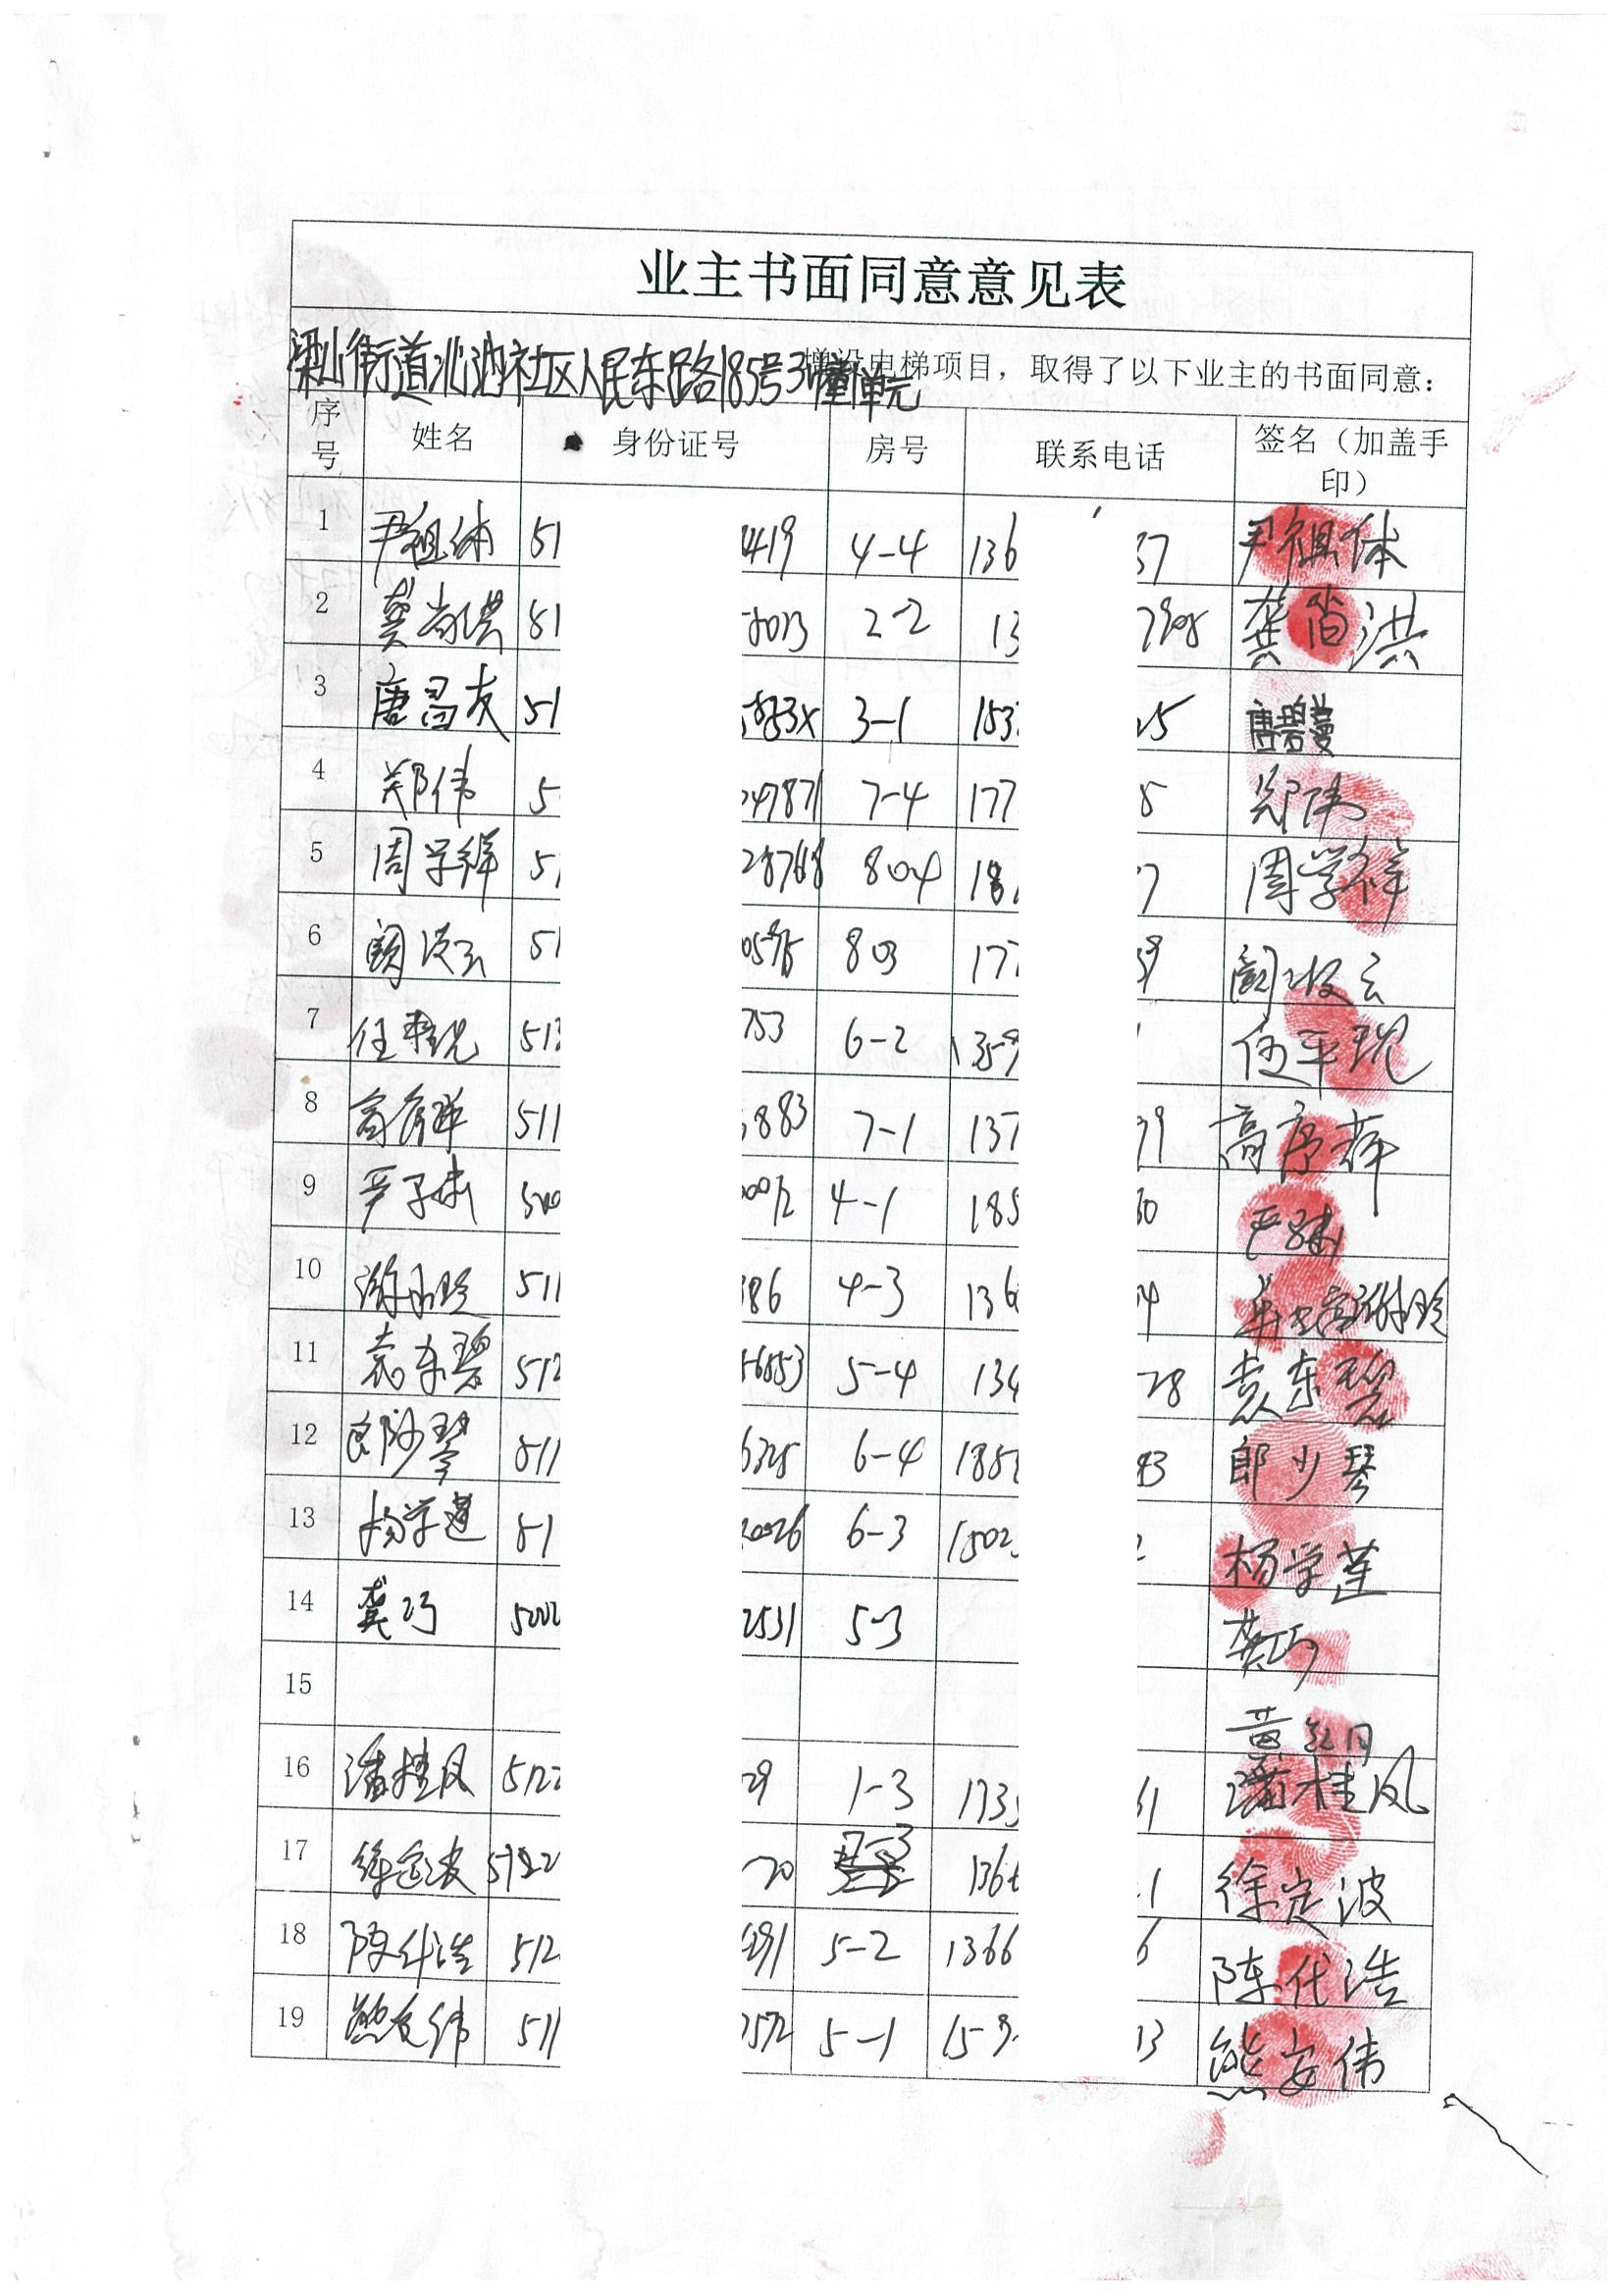 业主书面同意意见表
梁山街道北池社区人民东路185号3幢单元增设电梯项目，取得了以下业主的书面同意：
序号 姓名 身份证号 房号 联系电话 签名（加盖手印）
1 尹祖体 51 419 4-4 136 37 尹祖体
2 龚尚洪 51 2-2 13 龚尚洪
3 唐昌友 51 3-1 153 25 唐碧蔓
4 郑伟 5 247871 7-4 177 郑伟
5 周学锋 51 28768 804 181 7 周学锋
6 阚淑云 51 803 177 59 阚淑云
7 任平现 513 753 6-2 1359 任平现
8 高序萍 511 883 7-1 137 高序萍
9 严子斌 500 4-1 185 30 严子斌
10 511 186 4-3 136 4
11 袁东碧 512 56853 5-4 134 28 袁东碧
12 郎少琴 511 6-4 185 43 郎少琴
13 杨学莲 51 30026 6-3 1502 2 杨学莲
14 龚巧 5002 2531 5-3 龚巧
15 黄
16 潘桂凤 5122 29 1-3 1733 31 潘桂凤
17 徐定波 5122 20 136 1 徐定波
18 陈代浩 512 5-2 1366 6 陈代浩
19 熊安伟 511 2572 5-1 159 13 熊安伟